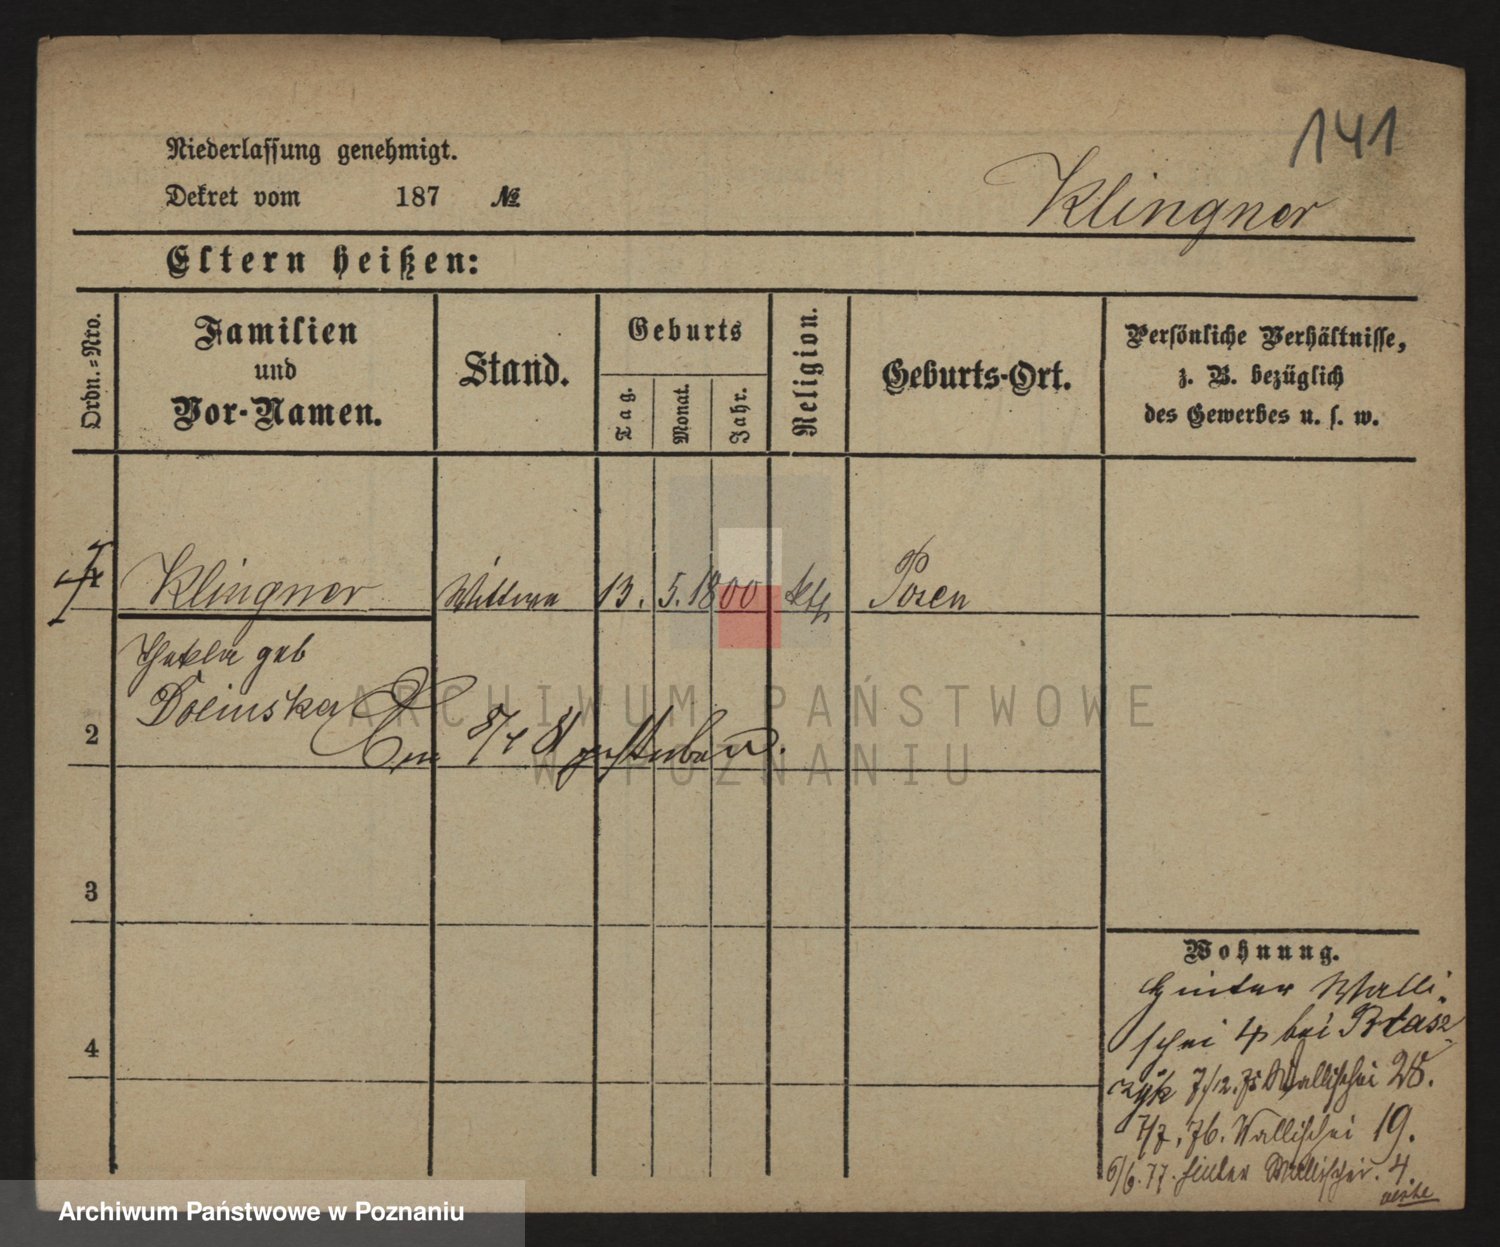 141
Niederlassung genehmigt.
Dekret vom 187 №
Klingner
Eltern heißen:
Ordn.-Nro.
Familien
und
Vor-Namen.
Stand.
Geburts
Tag.
Monat.
Jahr.
Religion.
Geburts-Ort.
Persönliche Verhältnisse,
z. B. bezüglich
des Gewerbes u. s. w.
Klingner Wittwe 13. 5. 1800 kth Posen
Thekla geb
Dolinska
2
Am 8/4 81 gestorben.
3
4
Wohnung.
Hinter Walli-
schei 4 bei Błasz-
czyk 7/12. 75 Wallischei 28.
7/7. 76. Wallischei 19.
6/6. 77. hinter Wallischei. 4.
ARCHIWUM PAŃSTWOWE
W POZNANIU
Archiwum Państwowe w Poznaniu